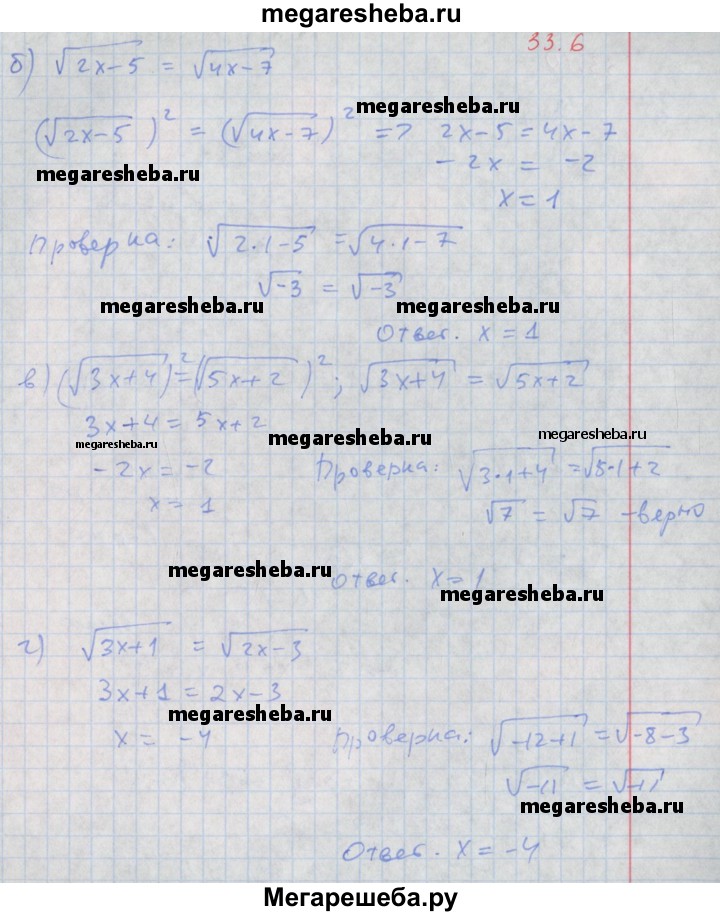 megaresheba.ru
33.6
б) √2x-5 = √4x-7
megaresheba.ru
(√2x-5)² = (√4x-7)² => 2x-5 = 4x-7
megaresheba.ru
-2x = -2
x = 1
Проверка: √2·1-5 = √4·1-7
√-3 = √-3
megaresheba.ru megaresheba.ru
Ответ. x = 1
в) (√3x+4)² = (√5x+2)²; √3x+4 = √5x+2
3x+4 = 5x+2
megaresheba.ru megaresheba.ru megaresheba.ru
-2x = -2
Проверка: √3·1+4 = √5·1+2
x = 1
√7 = √7 - верно
megaresheba.ru
Ответ. x = 1
megaresheba.ru
г) √3x+1 = √2x-3
3x+1 = 2x-3
megaresheba.ru
x = -4
Проверка: √-12+1 = √-8-3
√-11 = √-11
megaresheba.ru
Ответ. x = -4
Мегарешеба.ру